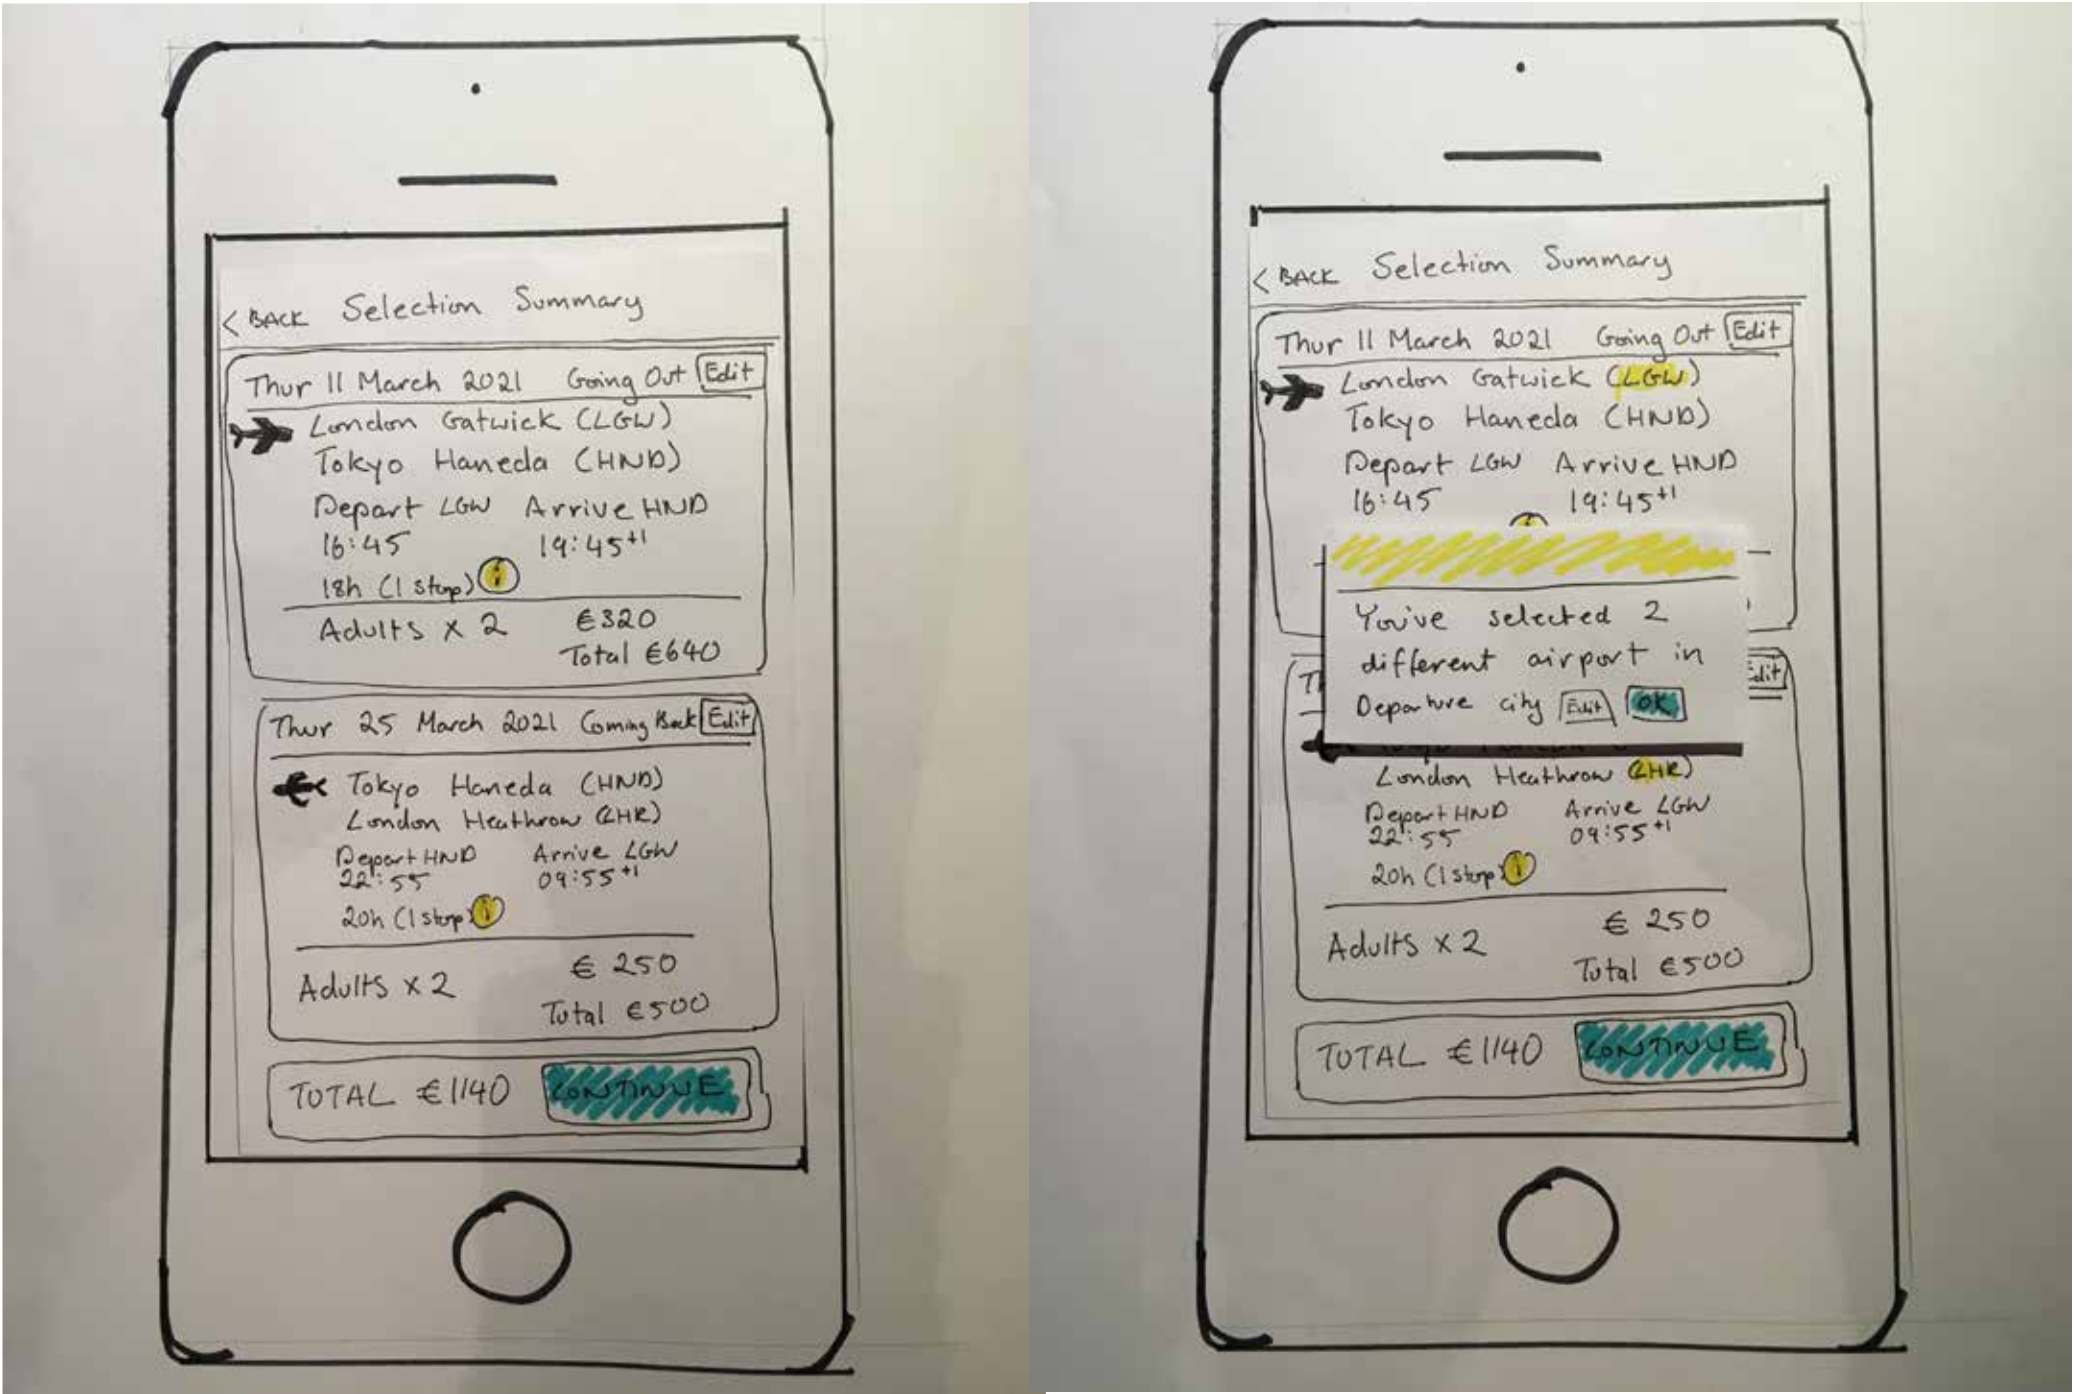 < BACK Selection Summary
Thur 11 March 2021 Going Out Edit
London Gatwick (LGW)
Tokyo Haneda (HND)
Depart LGW Arrive HND
16:45 19:45+1
18h (1 stop) i
Adults x 2 €320
Total €640
Thur 25 March 2021 Coming Back Edit
Tokyo Haneda (HND)
London Heathrow (LHR)
Depart HND Arrive LGW
22:55 09:55+1
20h (1 stop) i
Adults x 2 € 250
Total €500
TOTAL €1140 CONTINUE
< BACK Selection Summary
Thur 11 March 2021 Going Out Edit
London Gatwick (LGW)
Tokyo Haneda (HND)
Depart LGW Arrive HND
16:45 19:45+1
You've selected 2
different airport in
Departure city Edit OK
Edit
London Heathrow (LHR)
Depart HND Arrive LGW
22:55 09:55+1
20h (1 stop) i
Adults x 2 € 250
Total €500
TOTAL €1140 CONTINUE